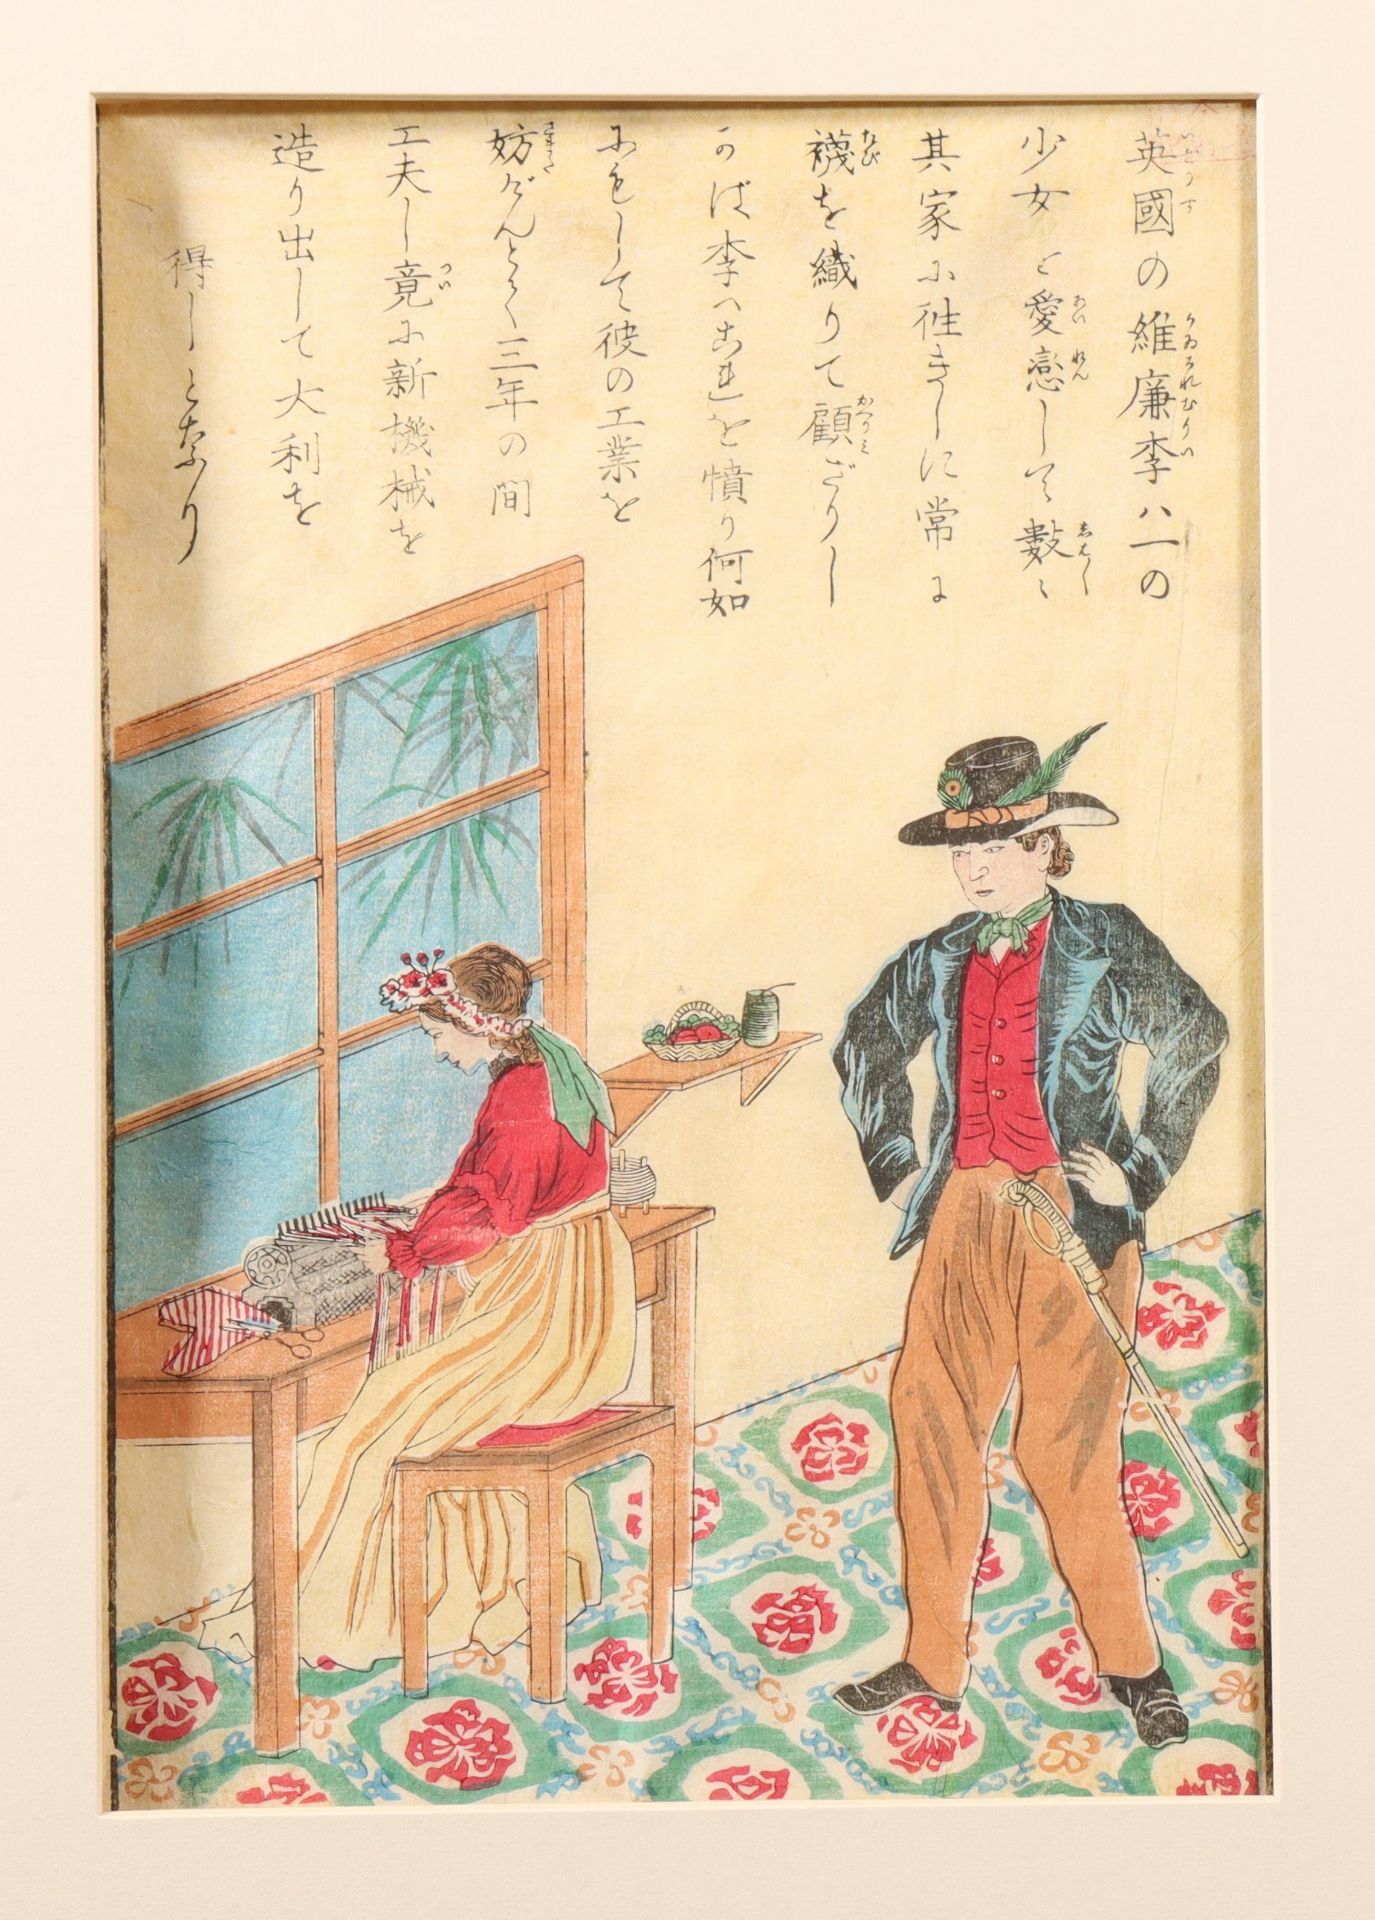 英國の維廉李ハ一の
少女と愛戀して數〻
其家に徃きしに常に
襪を織りて顧ざりし
かば李へこれを憤り何如
にもして彼の工業を
妨げんとて三年の間
工夫し竟に新機械を
造り出して大利を
得しとなり